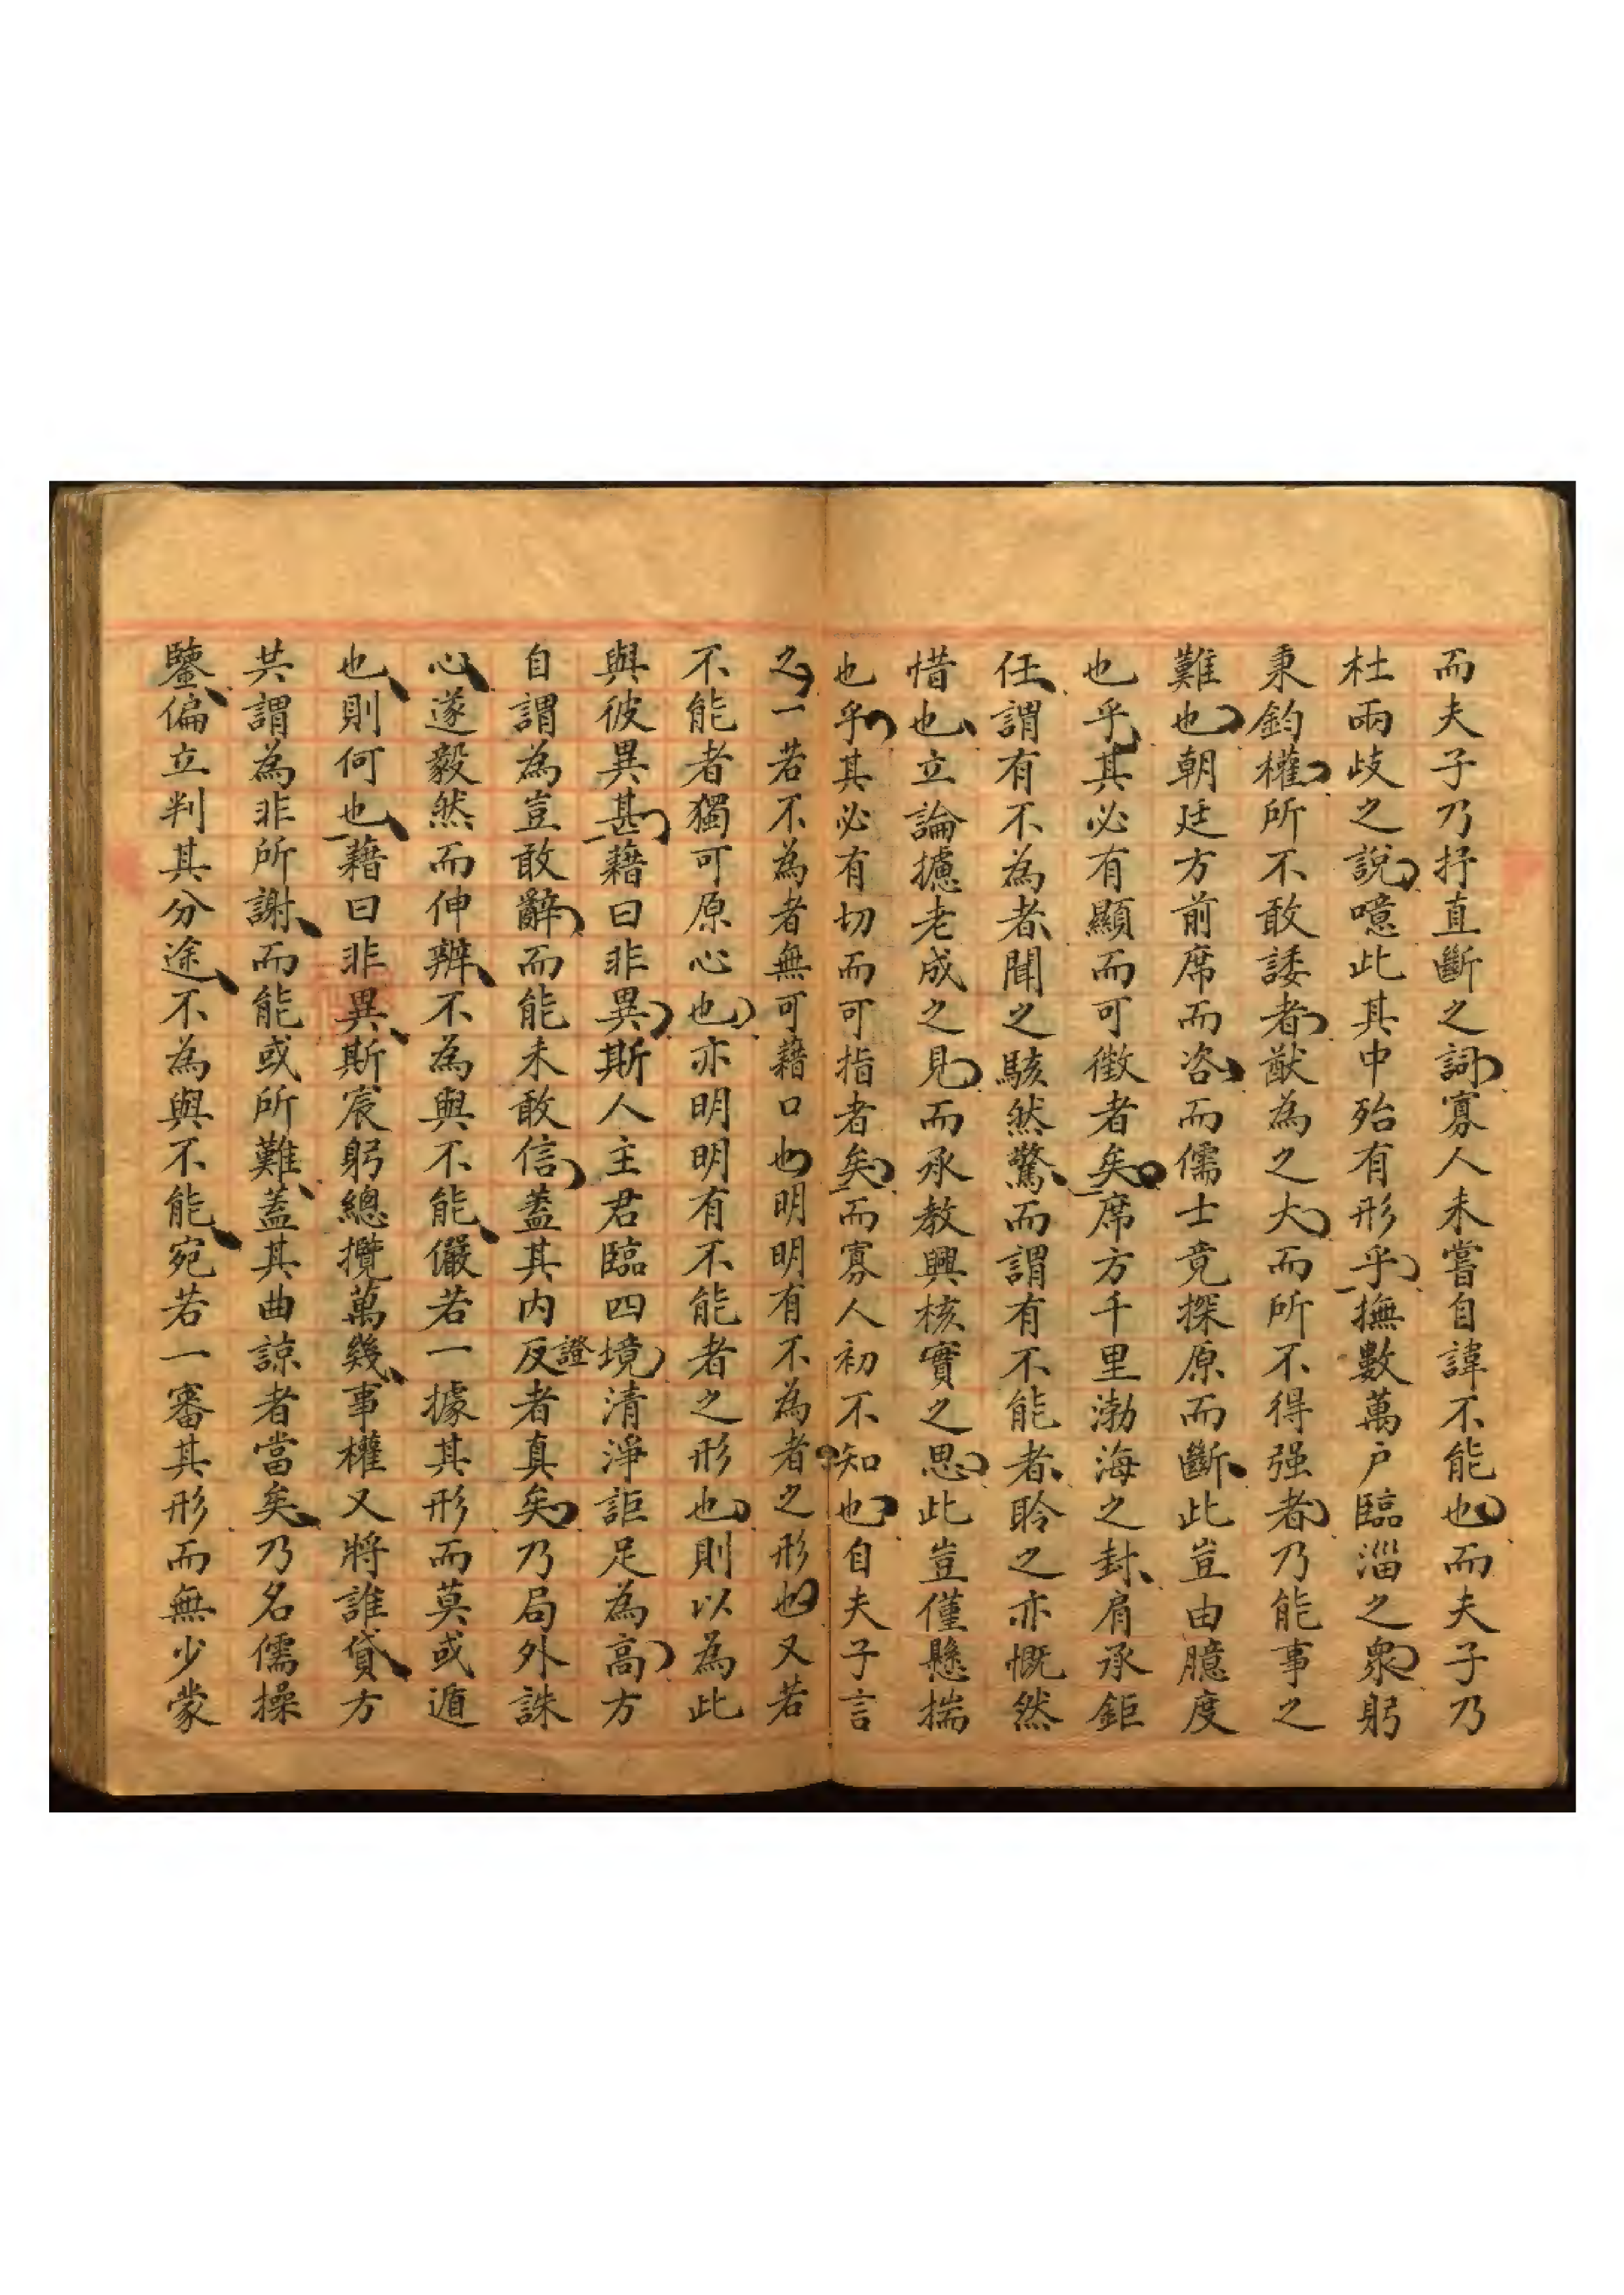 而夫子乃抒直斷之詞寡人未嘗自諱不能也而夫子乃
杜兩歧之說噫此其中殆有形乎撫數萬戶臨淄之衆躬
秉鈞權所不敢諉者猷為之大而所不得强者乃能事之
難也朝廷方前席而咨而儒士竟探原而斷此豈由臆度
也乎其必有顯而可徵者矣席方千里渤海之封肩承鉅
任謂有不為者聞之駭然驚而謂有不能者聆之亦慨然
惜也立論攄老成之見而承教興核實之思此豈僅懸揣
也乎其必有切而可指者矣而寡人初不知也自夫子言
之一若不為者無可藉口也明明有不為者之形也又若
不能者獨可原心也亦明明有不能者之形也則以為此
與彼異甚藉曰非異斯人主君臨四境清淨詎足為高方
自謂為豈敢辭而能未敢信蓋其內反證者真矣乃局外誅
心遂毅然而伸辨不為與不能儼若一據其形而莫或遁
也則何也藉曰非異斯宸躬總攬萬幾事權又將誰貸方
共謂為非所謝而能或所難蓋其曲諒者當矣乃名儒操
鑒偏立判其分途不為與不能宛若一審其形而無少蒙